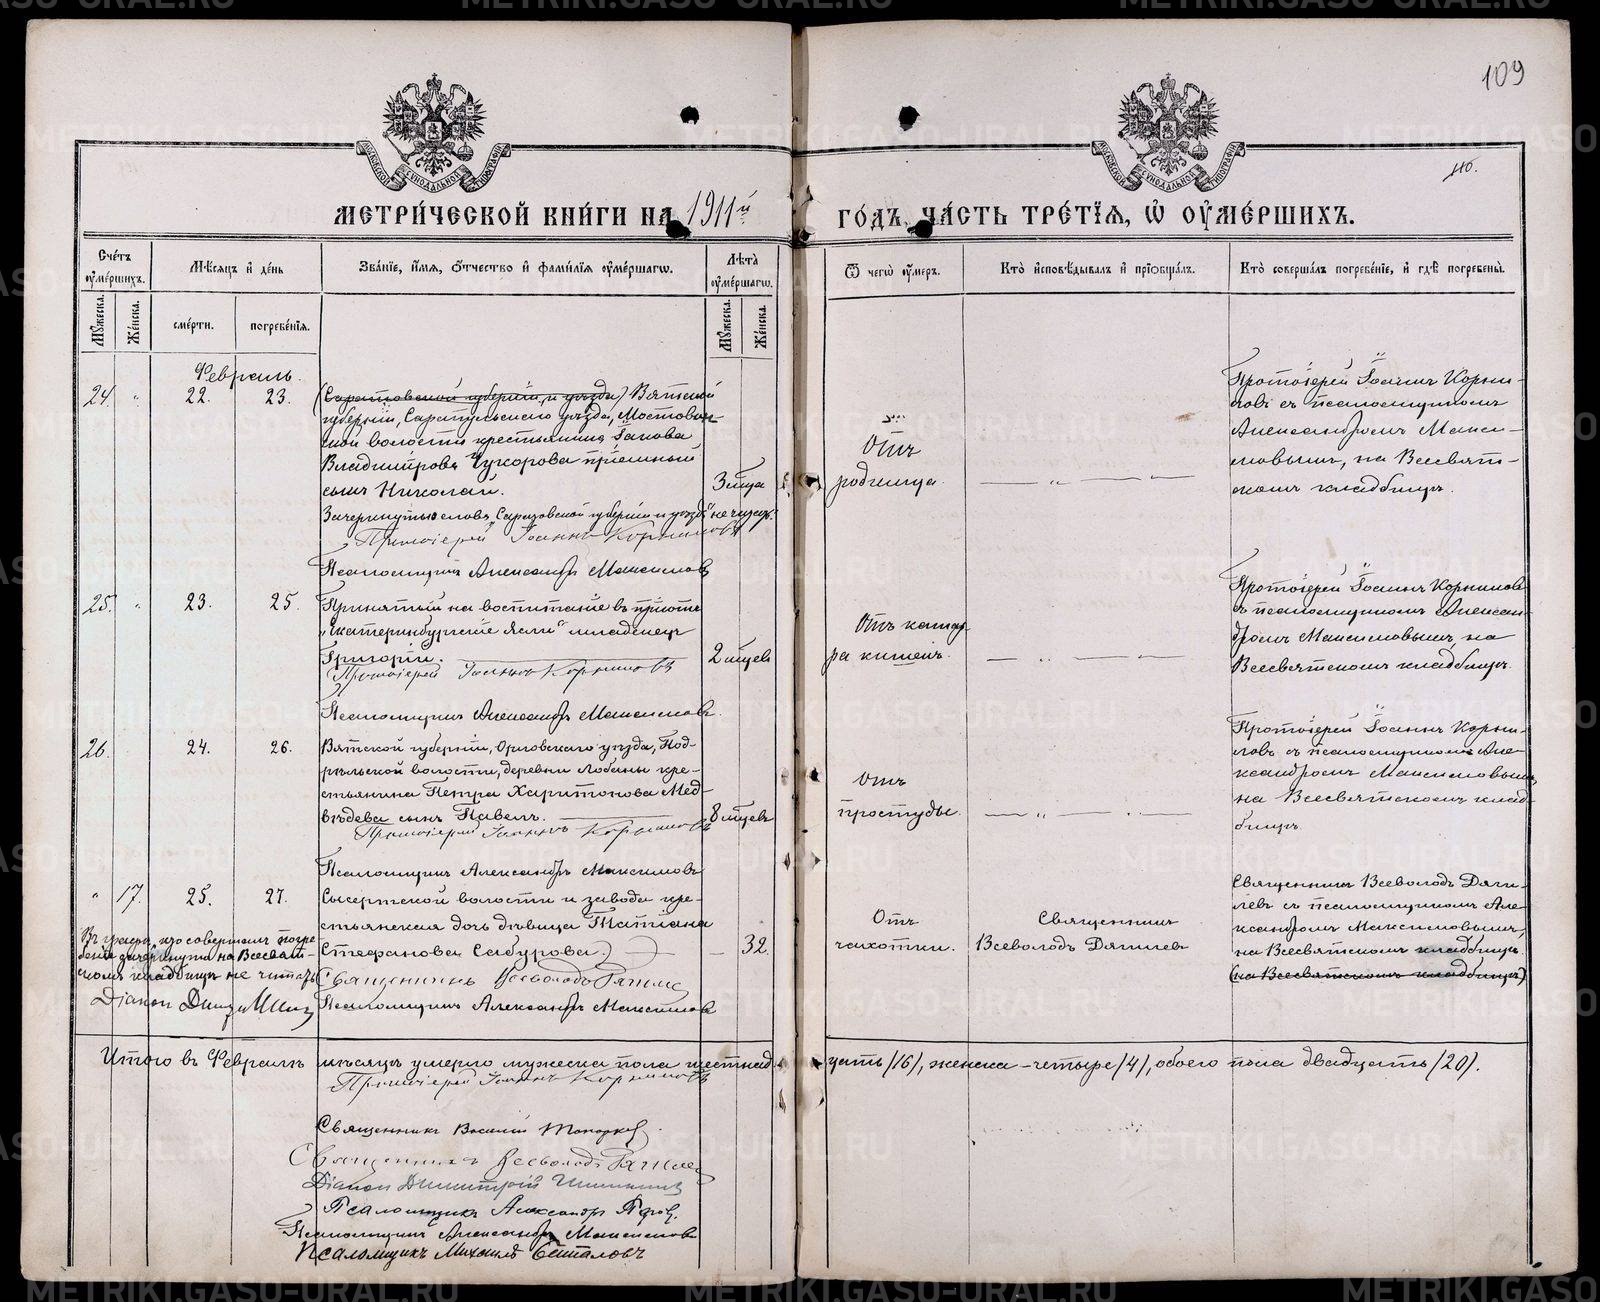 109
110.
МОСКОВСКОЙ СѴНОДАЛЬНОЙ ТИПОГРАФІИ
МОСКОВСКОЙ СѴНОДАЛЬНОЙ ТИПОГРАФІИ
МЕТРИ́ЧЕСКОЙ КНИ́ГИ НА 1911й
ГО́ДЪ, ЧА́СТЬ ТРЕ́ТЇѦ, Ѡ҆ ОУ҆МЕ́РШИХЪ.
Сче́тъ оу҆ме́ршихъ.
Мꙋ́жеска.
Же́нска.
Мѣ́сѧцъ и҆ де́нь
сме́рти.
погребе́нїѧ.
Зва́нїе, и҆́мѧ, ѻ҆́тчество и҆ фами́лїѧ оу҆ме́ршагѡ.
Лѣ̑та оу҆ме́ршагѡ.
Мꙋ́жеска.
Же́нска.
Ѿ чегѡ̀ оу҆́меръ.
Кто̀ и҆сповѣ́дывалъ и҆ прїѡбща́лъ.
Кто̀ соверша́лъ погребе́нїе, и҆ гдѣ̀ погребены̀.
Февраль.
24. " 22. 23.
(Саратовской губерніи, и уѣзда) Вятской
губерніи, Сарапульскаго уѣзда, Мостовин-
ской волости крестьянина Іакова
Владимірова Чухорова пріемный
сынъ Николай.
3 мѣца
Зачеркнутые слова "Саратовской губерніи и уѣзда" не читать.
Протоіерей Іоаннъ Корниловъ
Псаломщикъ Александръ Максимовъ
Отъ
родимца.
Протоіерей Іоаннъ Корни-
ловъ съ псаломщикомъ
Александромъ Макси-
мовымъ, на Всесвят-
скомъ кладбищѣ.
25. " 23. 25.
Принятый на воспитаніе въ пріютъ
"Екатеринбургскіе Ясли" младенецъ
Григорій.
2 мѣцевъ
Протоіерей Іоаннъ Корниловъ
Псаломщикъ Александръ Максимовъ.
Отъ катар-
ра кишекъ.
Протоіерей Іоаннъ Корниловъ
съ псаломщикомъ Алексан-
дромъ Максимовымъ на
Всесвятскомъ кладбищѣ.
26. 24. 26.
Вятской губерніи, Орловскаго уѣзда, Под-
рѣльской волости, деревни Лобаны кре-
стьянина Петра Харитонова Мед-
вѣдева сынъ Павелъ.
8 мѣцевъ
Протоіерей Іоаннъ Корниловъ
Псаломщикъ Александръ Максимовъ
Отъ
простуды.
Протоіерей Іоаннъ Корни-
ловъ съ псаломщикомъ Але-
ксандромъ Максимовымъ,
на Всесвятскомъ клад-
бищѣ.
" 17. 25. 27.
Сысертской волости и завода кре-
стьянская дочь дѣвица Татіана
Стефанова Сабурова.
32.
Священникъ Всеволодъ Дягилевъ
Псаломщикъ Александръ Максимовъ
Въ графѣ, кто совершалъ погре-
беніе зачеркнутое на Всесвят-
скомъ кладбищѣ не читать
Діаконъ
Отъ
чахотки.
Священникъ
Всеволодъ Дягилевъ
Священникъ Всеволодъ Дяги-
левъ съ псаломщикомъ Але-
ксандромъ Максимовымъ,
на Всесвятскомъ кладбищѣ.
(на Всесвятскомъ кладбищѣ)
Итого въ Февралѣ мѣсяцѣ умерло мужеска пола шестнад-
цать /16/, женска - четыре /4/, обоего пола двадцать /20/.
Протоіерей Іоаннъ Корниловъ
Священникъ Василій
Священникъ Всеволодъ Дягилевъ
Діаконъ Димитрій
Псаломщикъ Александръ
Псаломщикъ Александръ Максимовъ
Псаломщикъ Михаилъ
METRIKI.GASO-URAL.RU